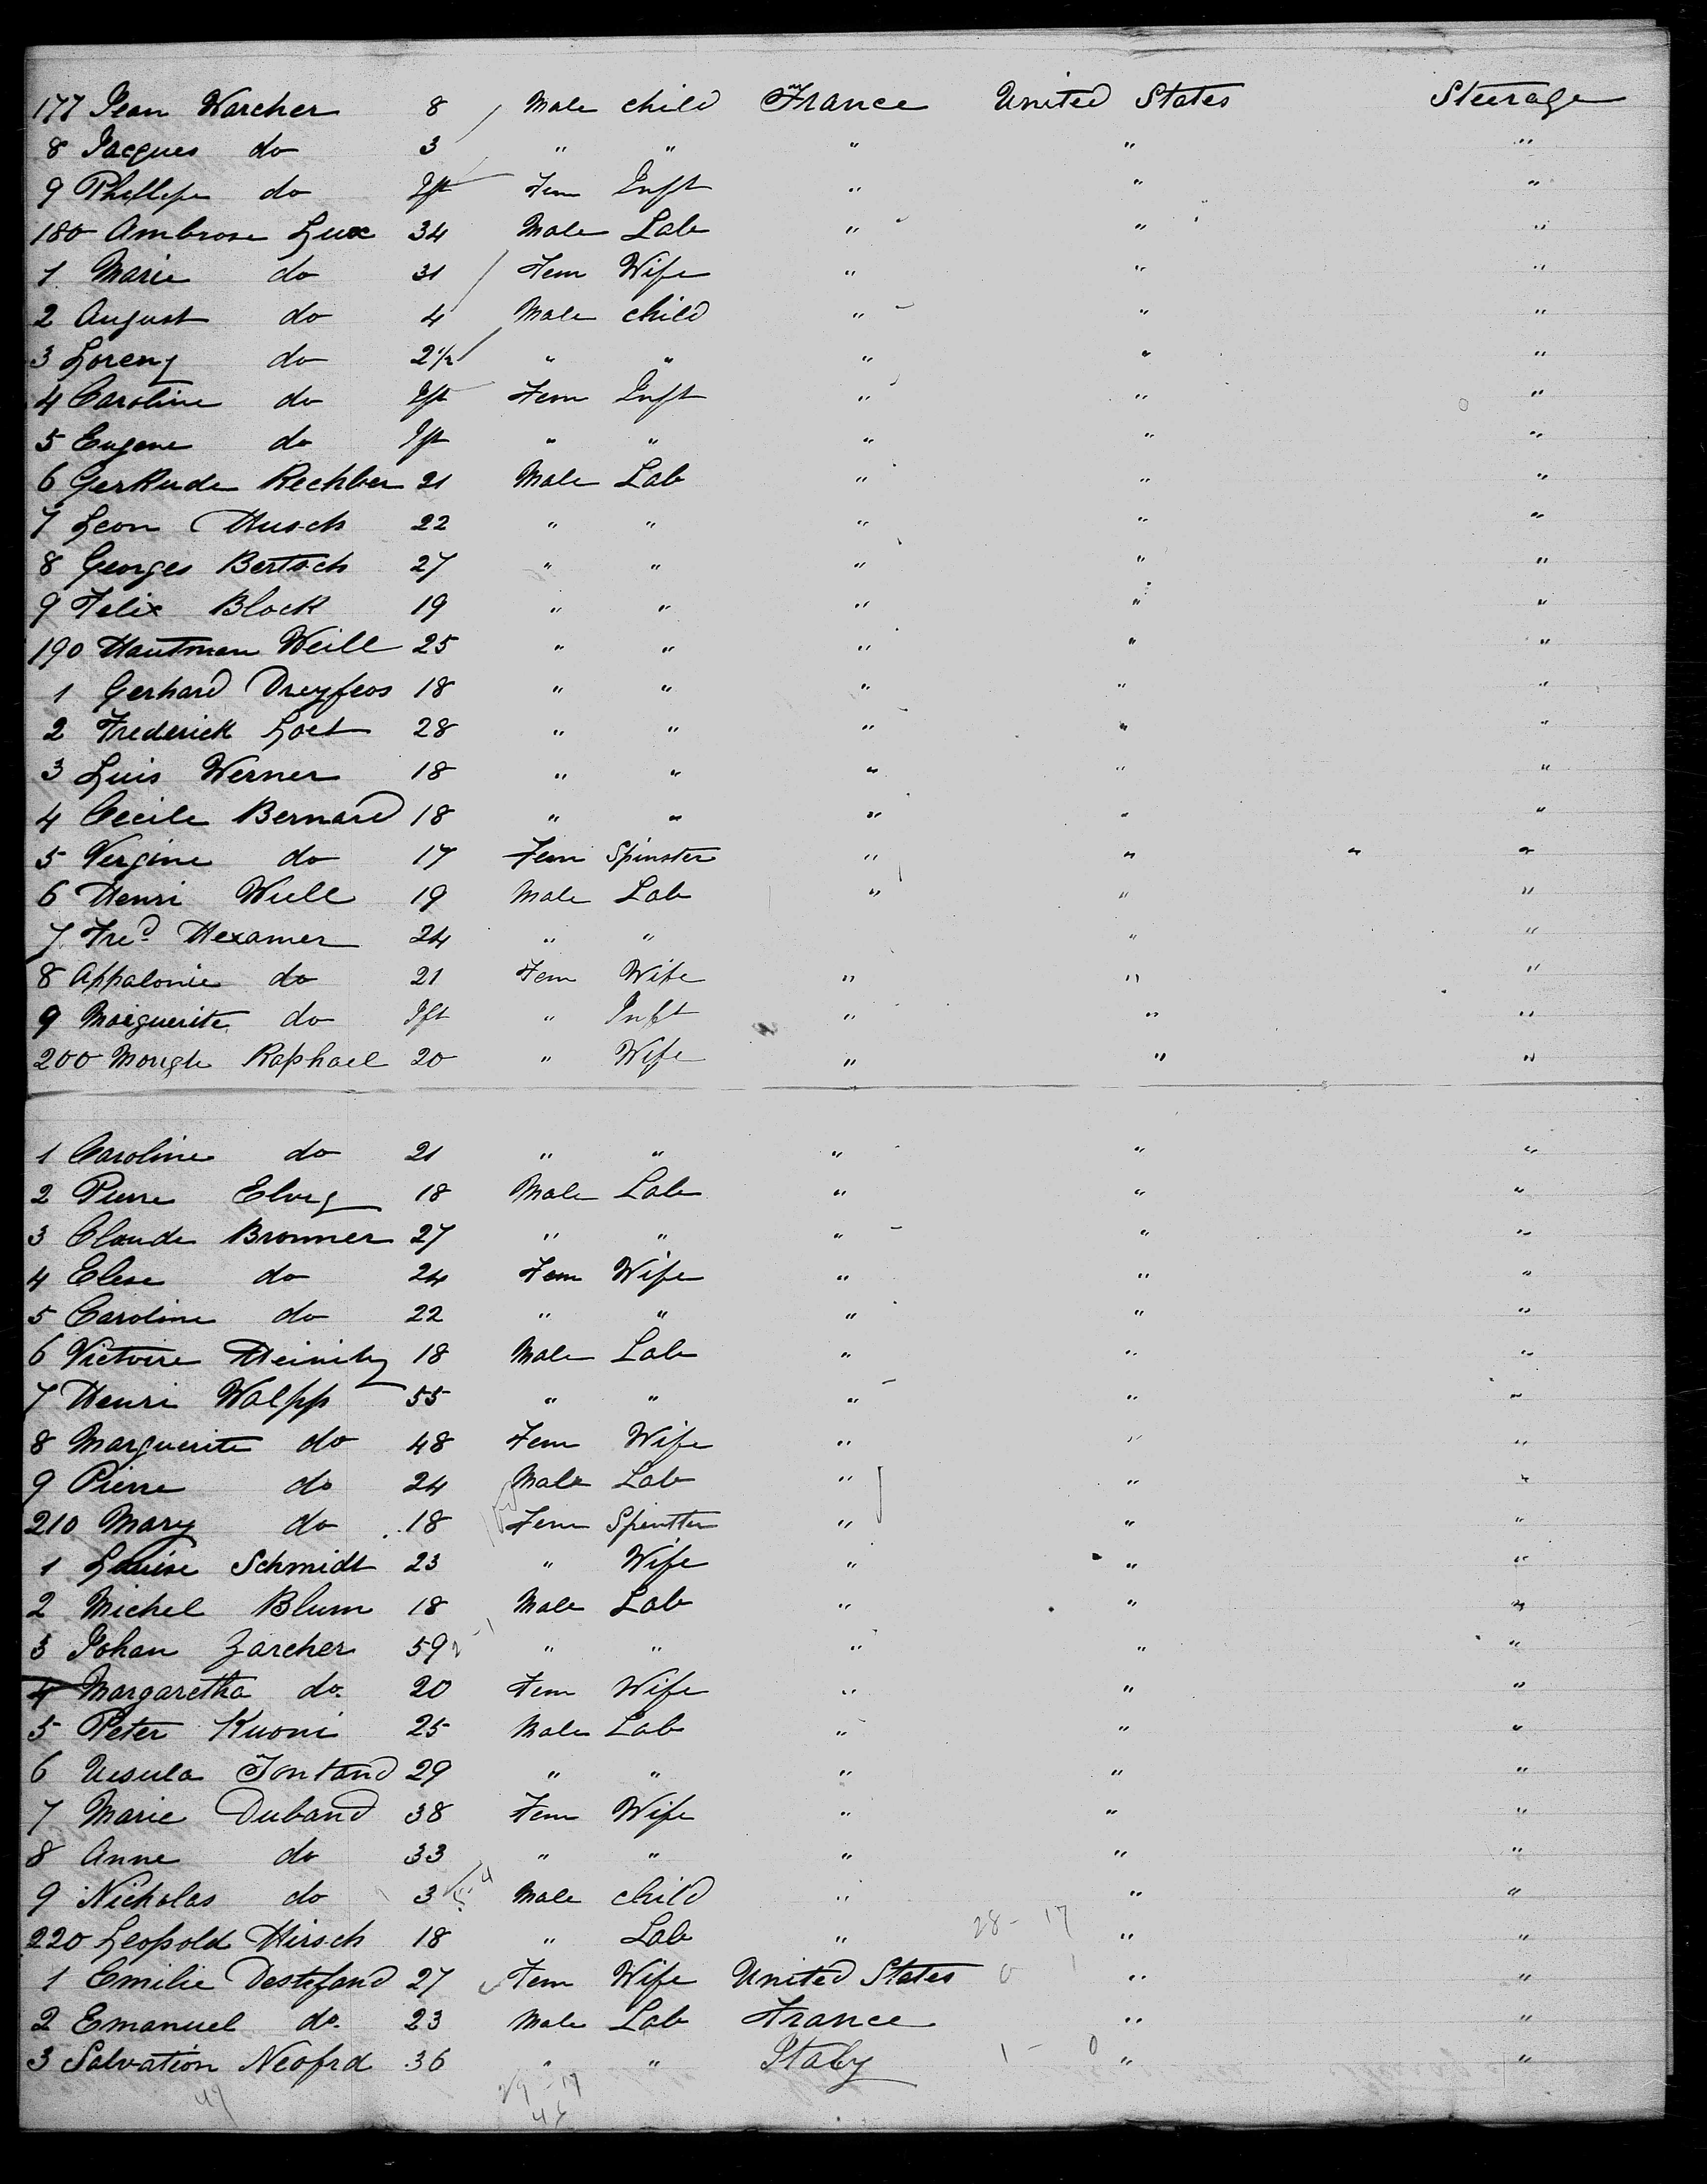 177 Jean Warcher 8 Male child France United States Steerage
8 Jacques do 3 " " " " "
9 Phillipe do Ift Fem Inft " " "
180 Ambrose Lux 34 Male Lab " " "
1 Marie do 31 Fem Wife " " "
2 August do 4 Male child " " "
3 Lorenz do 2½ " " " " "
4 Caroline do Ift Fem Inft " " "
5 Eugene do Ift " " " " "
6 Gerkude Rechber 21 Male Lab " " "
7 Leon Husch 22 " " " " "
8 Georges Bertsch 27 " " " " "
9 Felix Block 19 " " " " "
190 Hautman Weill 25 " " " " "
1 Gerhard Dreyfeos 18 " " " " "
2 Frederick Loet 28 " " " " "
3 Luis Werner 18 " " " " "
4 Cecile Bernard 18 " " " " "
5 Vergine do 17 Fem Spinster " " " "
6 Henri Well 19 Male Lab " " "
7 Fred Hexamer 24 " " " "
8 Appalonie do 21 Fem Wife " " "
9 Maiguerite do Ift " Inft " " "
200 Raphael 20 " Wife " " "
1 Caroline do 21 " " " " "
2 Pierre Elvig 18 Male Lab " " "
3 Claude Bronner 27 " " " " "
4 Elese do 24 Fem Wife " " "
5 Caroline do 22 " " " " "
6 Victoire 18 Male Lab " " "
7 Henri Walpp 55 " " " " "
8 Marguerite do 48 Fem Wife " " "
9 Pierre do 24 Male Lab " " "
210 Mary do 18 Fem Spinster " " "
1 Louise Schmidt 23 " Wife " " "
2 Michel Blum 18 Male Lab " " "
3 Johan Zarcher 59 " " " " "
4 Margaretha do. 20 Fem Wife " " "
5 Peter Kuoni 25 Male Lab " " "
6 Uesula Fontand 29 " " " " "
7 Marie Duband 38 Fem Wife " " "
8 Anne do 33 " " " " "
9 Nicholas do 3 Male child " " "
220 Leopold Hirsch 18 " Lab " 28-17 " "
1 Emilie Destefand 27 Fem Wife United States 0 1 " "
2 Emanuel do. 23 Male Lab France " "
3 Salvation Neofrd 36 " " Italy 1-0 " "
47 29-17
46